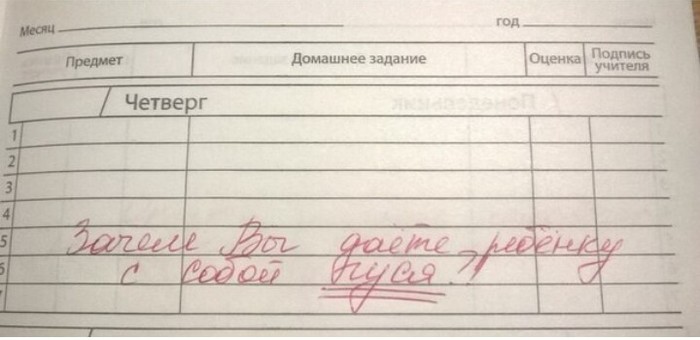 Месяц год
Предмет Домашнее задание Оценка Подпись учителя
Четверг
1
2
3
4
5 Зачем Вы даёте ребёнку
6 с собой гуся?
7